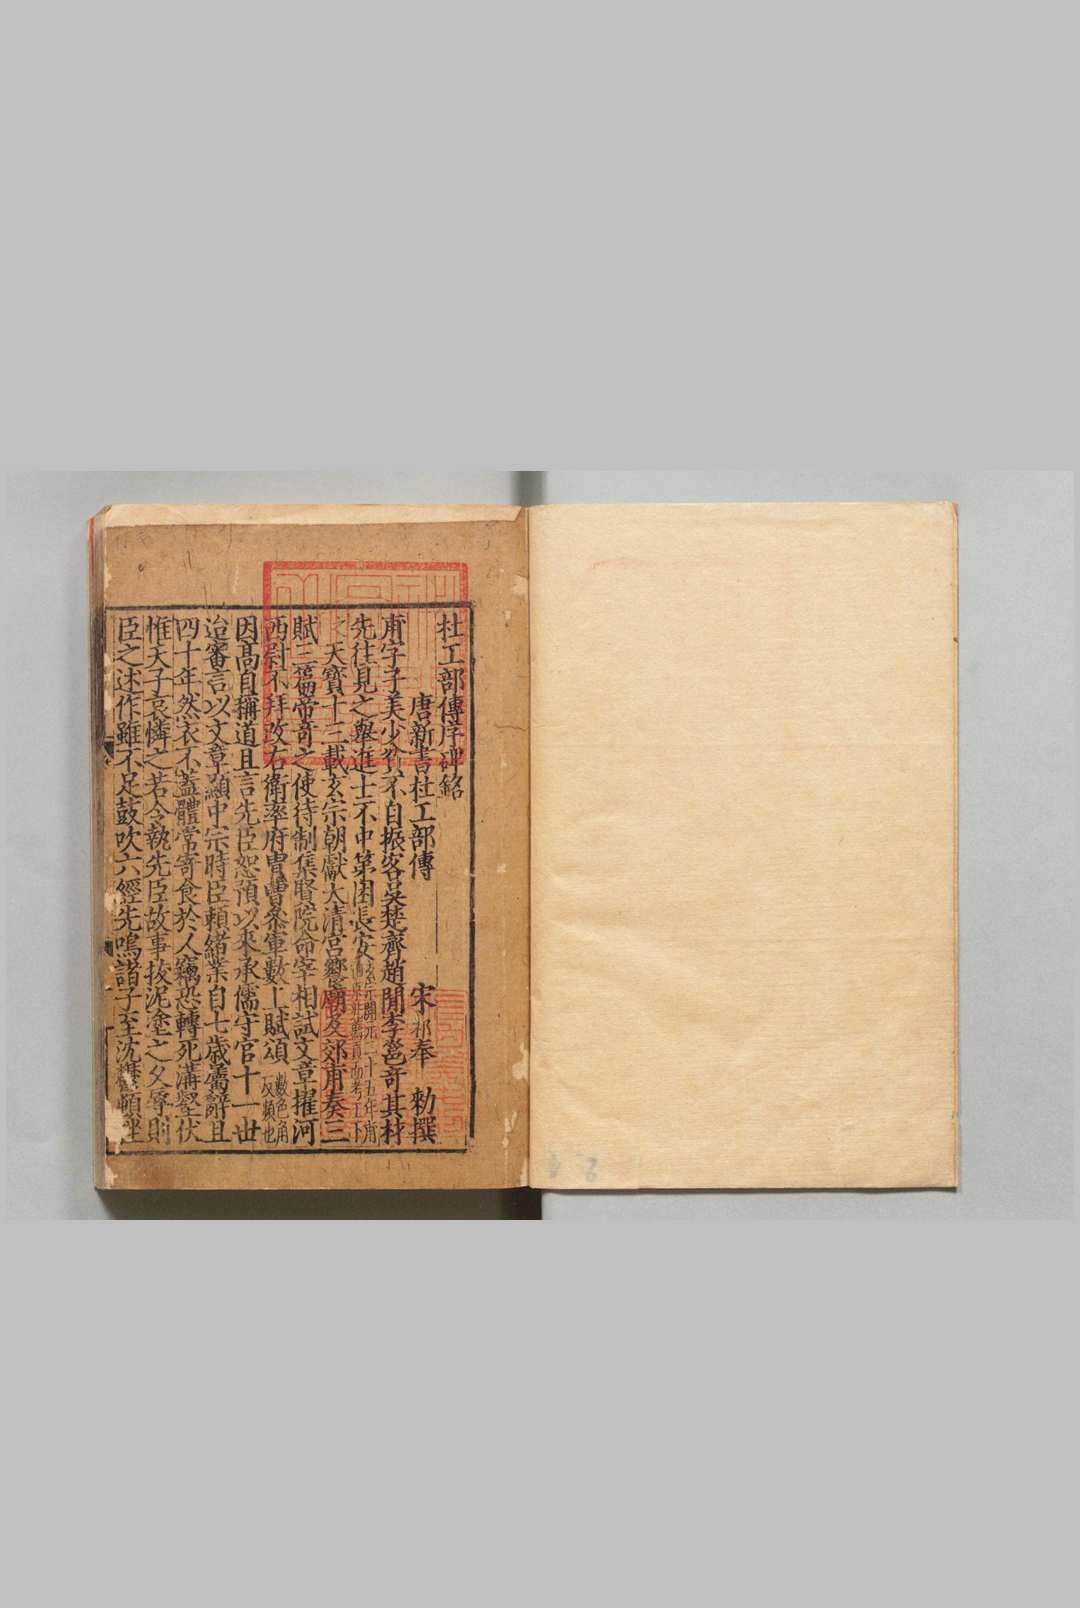 杜工部傳序碑銘
唐新書杜工部傳 宋祁奉 勑撰
甫字子美少貧不自振客吳楚齊趙間李邕竒其材
先往見之舉進士不中第困長安玄宗開元二十五年甫
天寶十三載玄宗朝獻太清宮饗廟及郊甫奏三
賦三篇帝竒之使待制集賢院命宰相試文章擢河
西尉不拜改右衛率府胄曹叅軍數上賦頌數色角反頻也
因高自稱道且言先臣恕預以來承儒守官十一世
迨審言以文章顯中宗時臣賴緒業自七歲屬辭且
四十年然衣不蓋體常寄食於人竊恐轉死溝壑伏
惟天子哀憐之若令執先臣故事拔泥塗之久辱則
臣之述作雖不足鼓吹六經先鳴諸子至沈欝頓挫